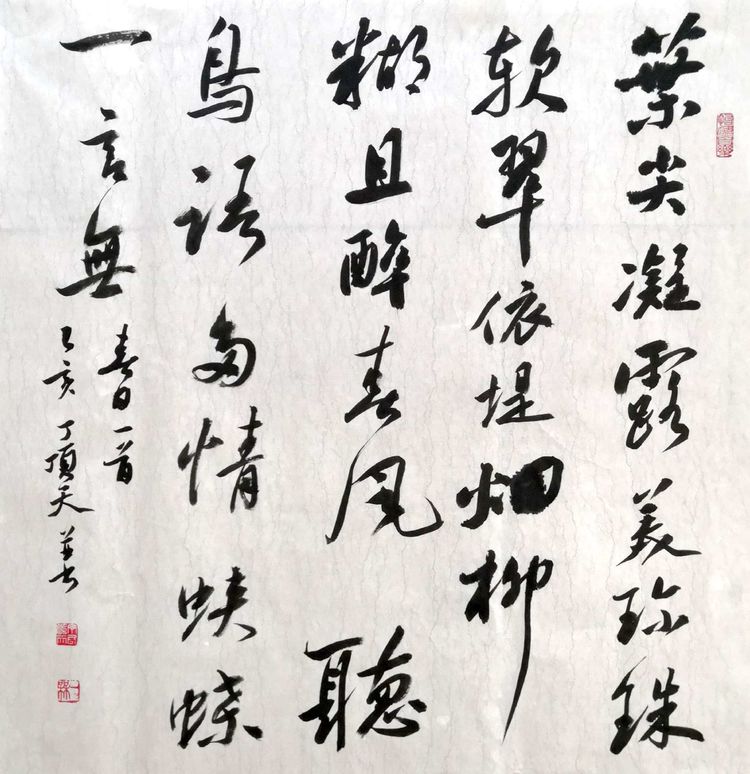 葉尖凝露美珍銖
软翠依堤烟柳
糊且醉春風聽
鳥語多情蛱蝶
一言無
春日一首
己亥丁頂天並书